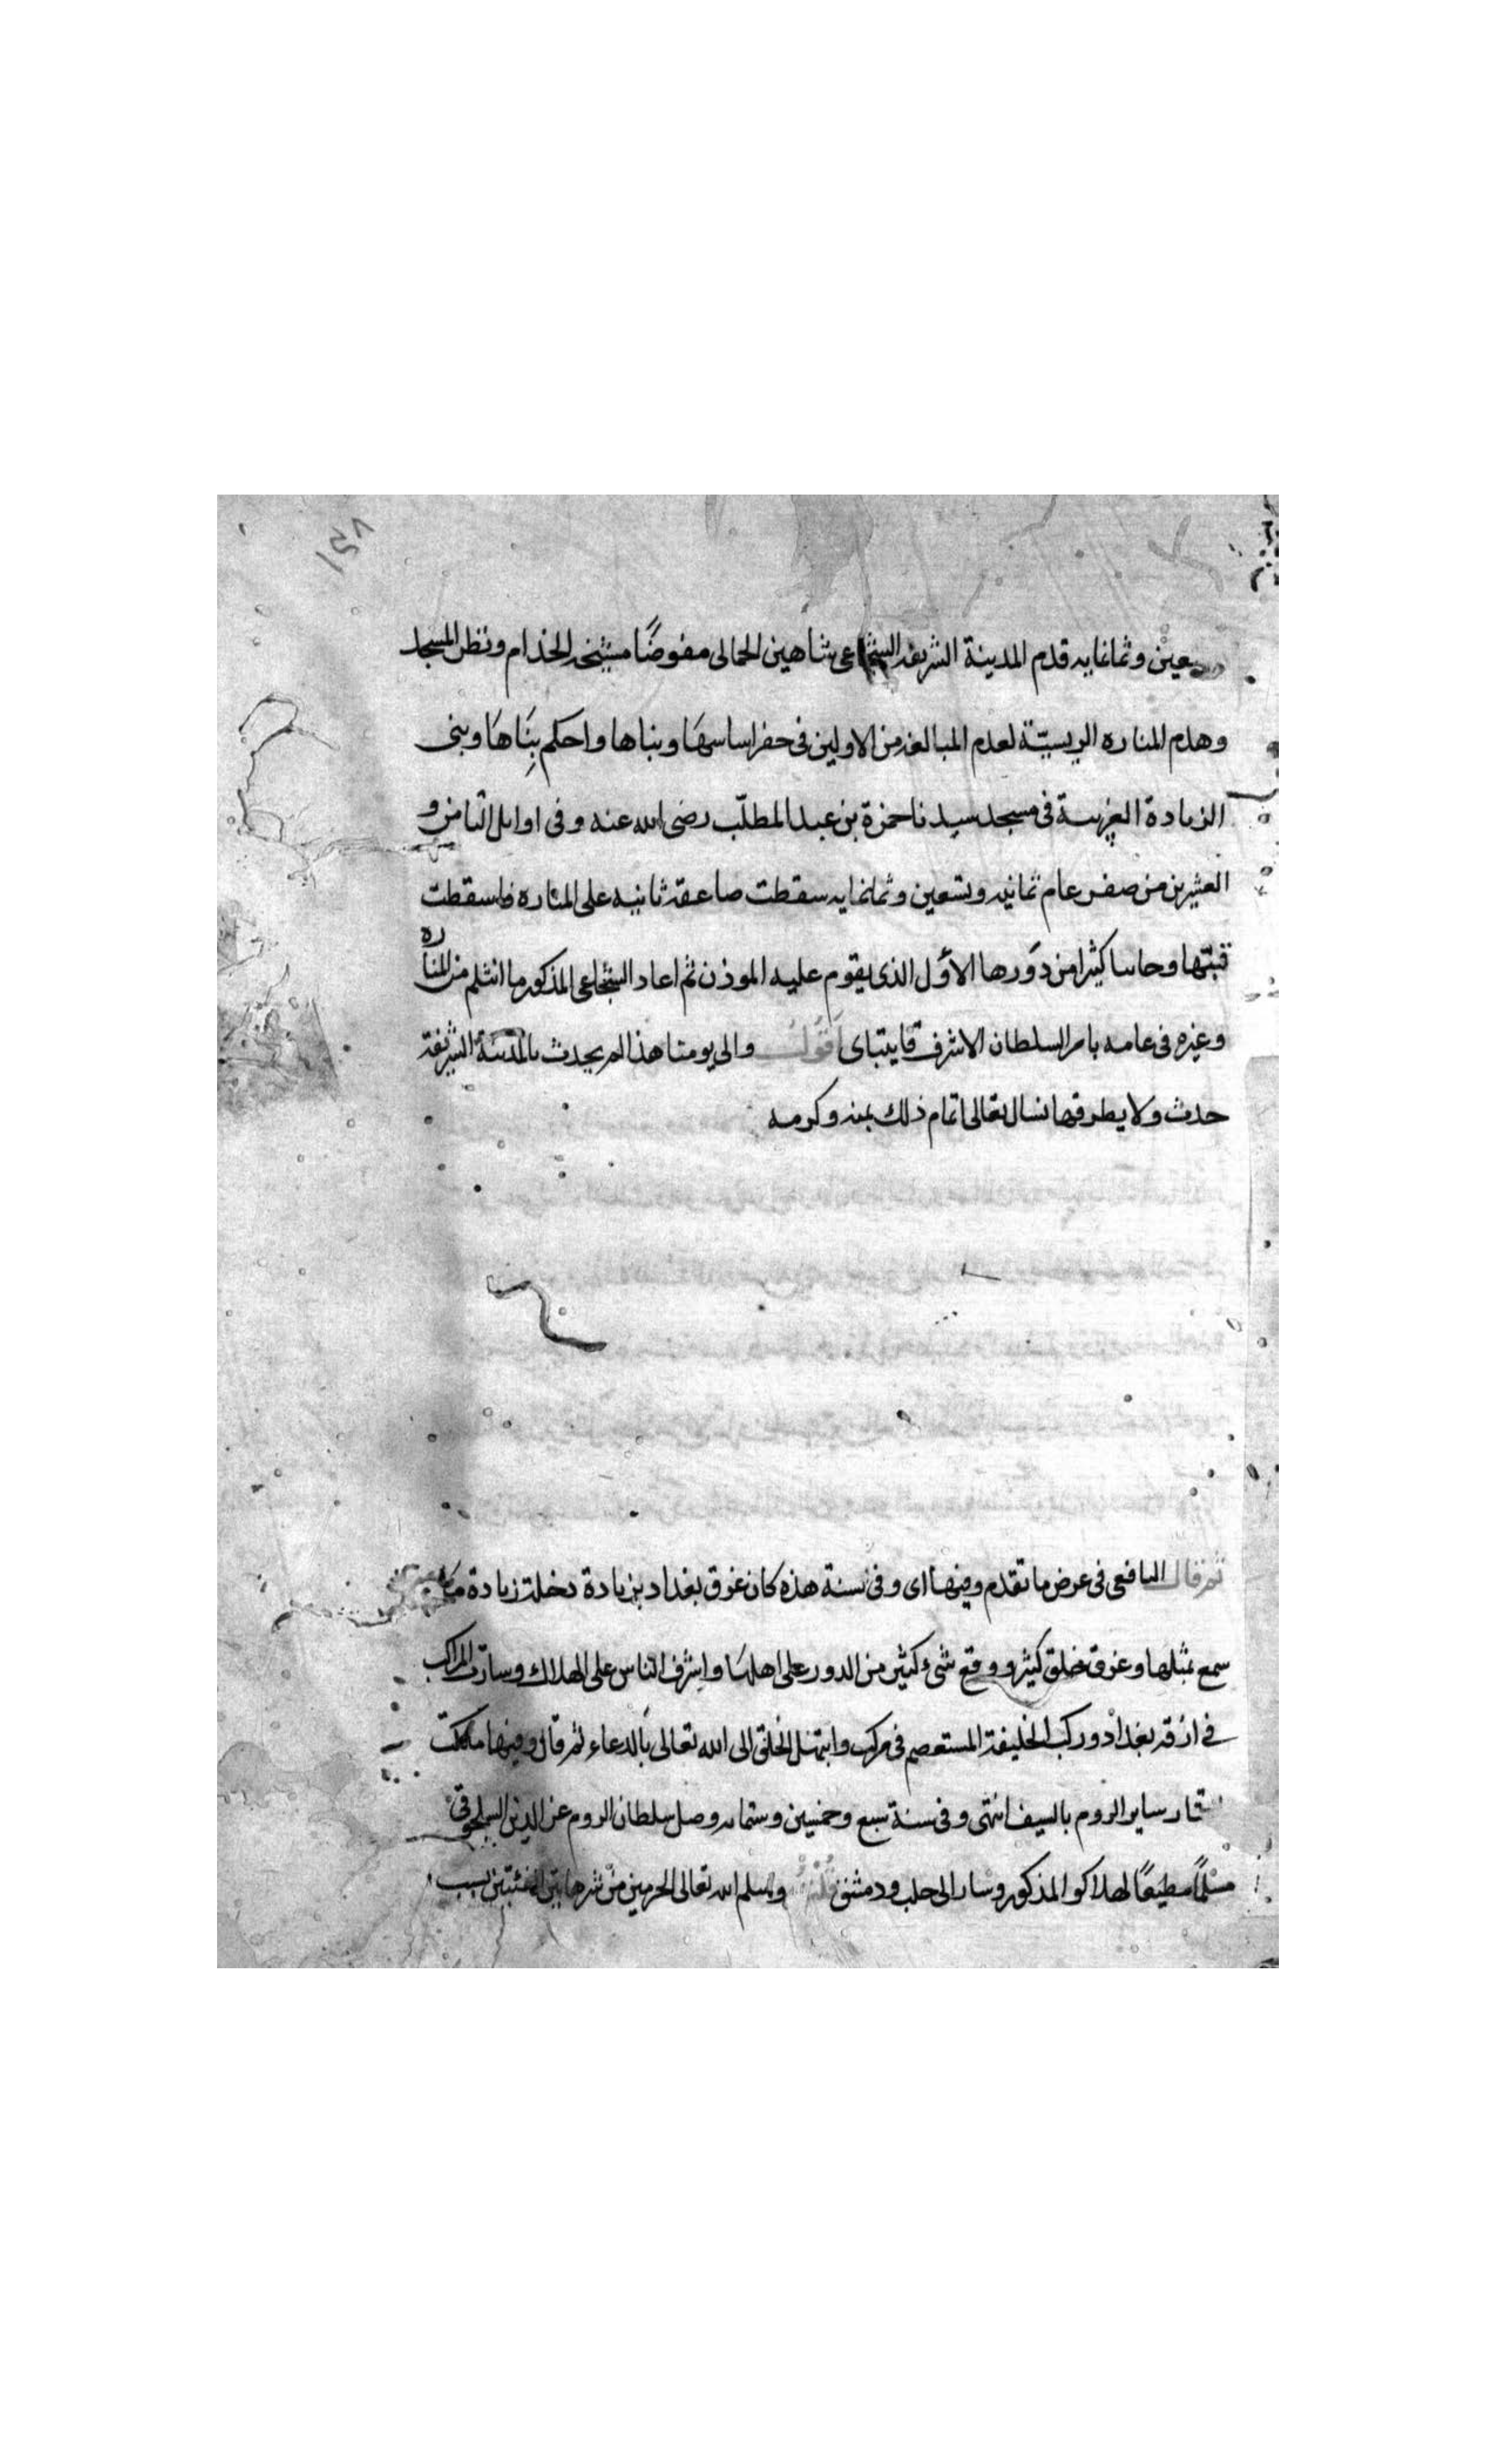 ١٥٨
وثمانمايه قدم المدينة الشريفه الشجاعى شاهين الجمالى مفوضًا مشيخه الخدام ونظر المسجد
وهدم المناره الريسيّة لعدم المبالغه من الاولين فى حفر اساسهَا وبناها واحكم بِنَاهَا وبنى
الزيادة الغربية فى مسجد سيدنا حمزة بن عبد المطلّب رضى الله عنه وفى اوايل الثامن و
العشرين من صفر عام ثمانيه وتسعين وثمانمايه سقطت صاعقة ثانيه على المناره فاسقطت
قبتّها وجانبا كثيرا من دَورها الأوّل الذى يقوم عليه الموذن ثم اعاد الشجاعى المذكور ما انثلم من المناره
وغيره فى عامه بامر السلطان الاشرف قايتباى اَقُولُ والى يومنا هذا لم يحدث بالمدينة الشريفة
حدث ولا يطرقها نسال تعالى اتمام ذلك بمنه وكرمه
ثم قال اليافعى فى عرض ما تقدم وفيها اى وفى سنة هذه كان غرق بغداد بزيادة دخلة زيادة ما
سمع بمثلها وغرق خلق كثير ووقع شىء كثير من الدور على اهلهَا واشرف الناس على الهلاك وسارت المراكب
فى ازقة بغداد وركب الخليفة المستعصم فى مركب وابتهل الخلق الى الله تعالى بالدعاء ثم قال وفيها ملكت
التتار ساير الروم بالسيف انتهى وفى سنة سبع وخمسين وستمايه وصل سلطان الروم عز الدين السلجوقى
مسلمًا مطيعًا لهلاكو المذكور وسار الى حلب ودمشق قلت وسلم الله تعالى الحرمين من شر هاتين الفئتين بسبب